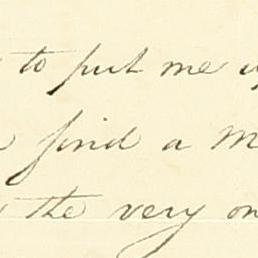 to put me
find a
the very